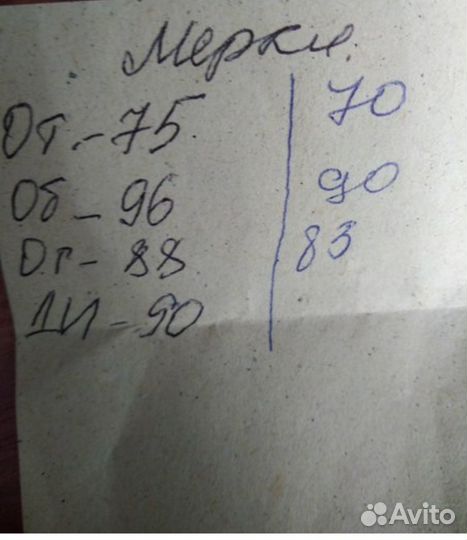 Мерки.
От. - 75. 70
Об - 96 90
Ог - 88 83
ДИ - 90
Avito